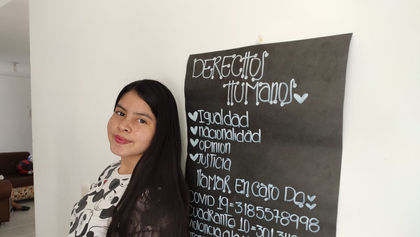 DERECHOS
HUMANOS
Igualdad
nacionalidad
opinion
JUSTICIA
llamar en caso De
COVID 19=3185578998
cuadrante 10=